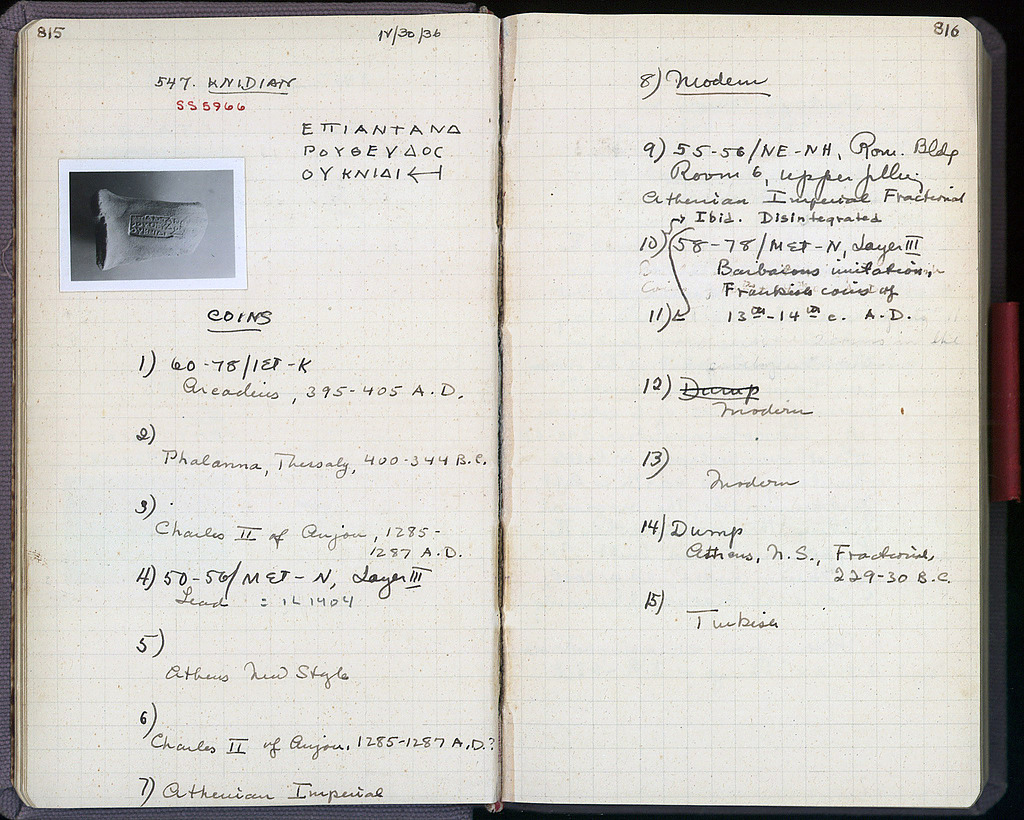 815
IV/30/36
547. KNIDIAN
SS5966
ΕΠΙΑΝΤΑΝΔ
ΡΟΥΘΕΥΔΟΣ
ΟΥ ΚΝΙΔΙ
COINS
1) 60-78/ΙΣΤ-Κ
Arcadius, 395-405 A.D.
2)
Phalanna, Thessaly, 400-344 B.C.
3)
Charles II of Anjou, 1285-
1287 A.D.
4) 50-56/ΜΣΤ-Ν, Layer III
Lead = IL 1404
5)
Athens New Style
6)
Charles II of Anjou, 1285-1287 A.D.?
7) Athenian Imperial
816
8) Modern
9) 55-56/NE-NH, Rom. Bldg
Room 6, upper
Athenian Imperial Fractional
Ibid. Disintegrated
10) 58-78/ΜΣΤ-Ν, Layer III
Barbarous imitation,
Frankish coins of
11) 13th-14th c. A.D.
12) Dump
Modern
13)
Modern
14) Dump
Athens, N.S., Fractional,
229-30 B.C.
15)
Turkish